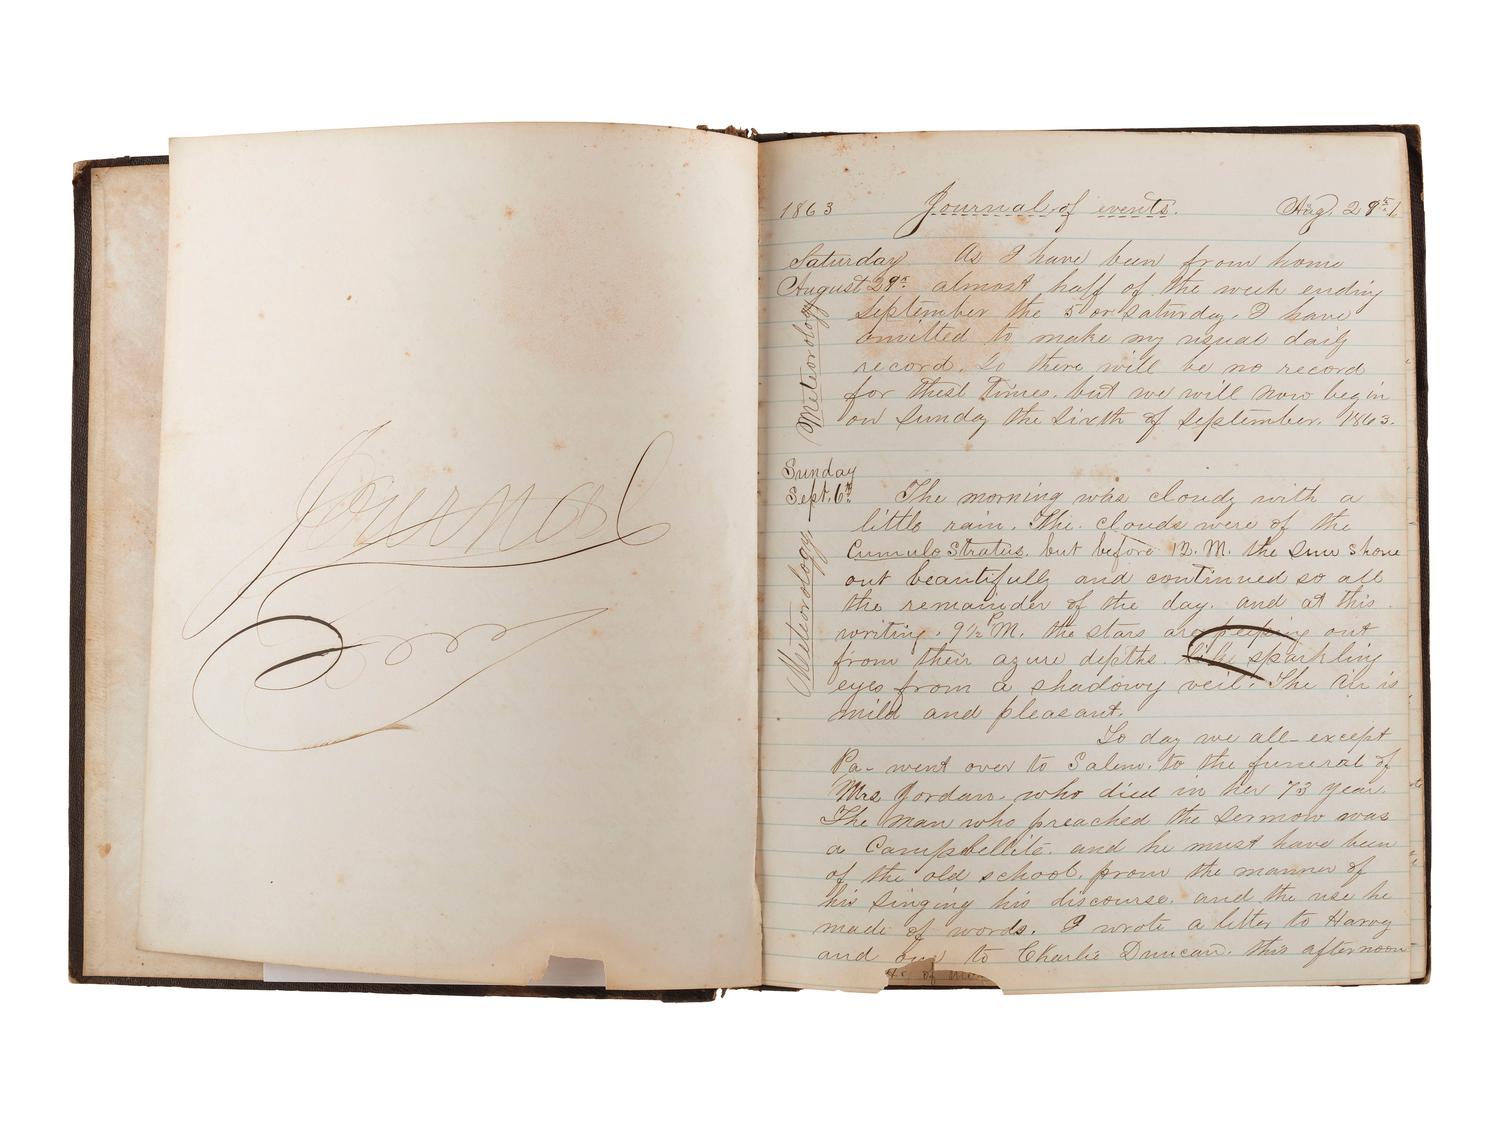 Journal
1863 Journal of events. Aug. 29th 1
Saturday As I have been from home
August 29th almost half of the week ending
Meteorology
September the 5 or Saturday. I have
omitted to make my usual daily
record. So there will be no record
for these times. but we will now begin
on Sunday the sixth of September. 1863.
Sunday
Sept. 6th The morning was cloudy with a
Meteorology
little rain. The clouds were of the
Cumulo Stratus. but before 12. M. the Sun shone
out beautifully and continued so all
the remainder of the day. and at this
writing. 9½ P M. the stars are peeping out
from their azure depths. like sparkling
eyes from a shadowy veil. The air is
mild and pleasant.
To day we all except
Pa- went over to Salem. to the funeral of
Mrs Jordan. who died in her 73 year.
The man who preached the Sermon was
a Campbellite. and he must have been
of the old school. from the manner of
his singing his discourse. and the use he
made of words. I wrote a letter to Harvy
and one to Charlie Duncan. this afternoon
of